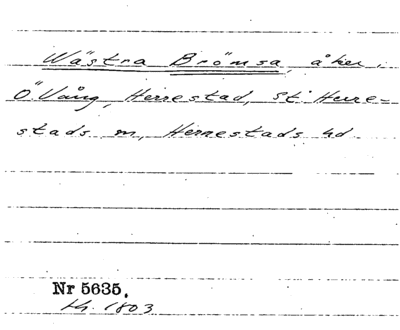 Wästra Brömsa, åker,
Ö Vång, Herrestad, St Herre-
stads sn, Herrestads hd.
Nr 5635,
LH. 1803